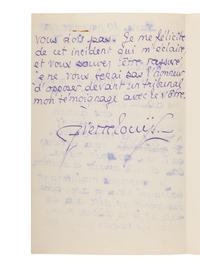 vous dois pas. Je me félicite
de cet incident qui m'éclaire
et vous pouvez être rassuré
je ne vous ferai pas l'honneur
d'opposer devant un tribunal
mon témoignage avec le vôtre.
Pierre Louÿs